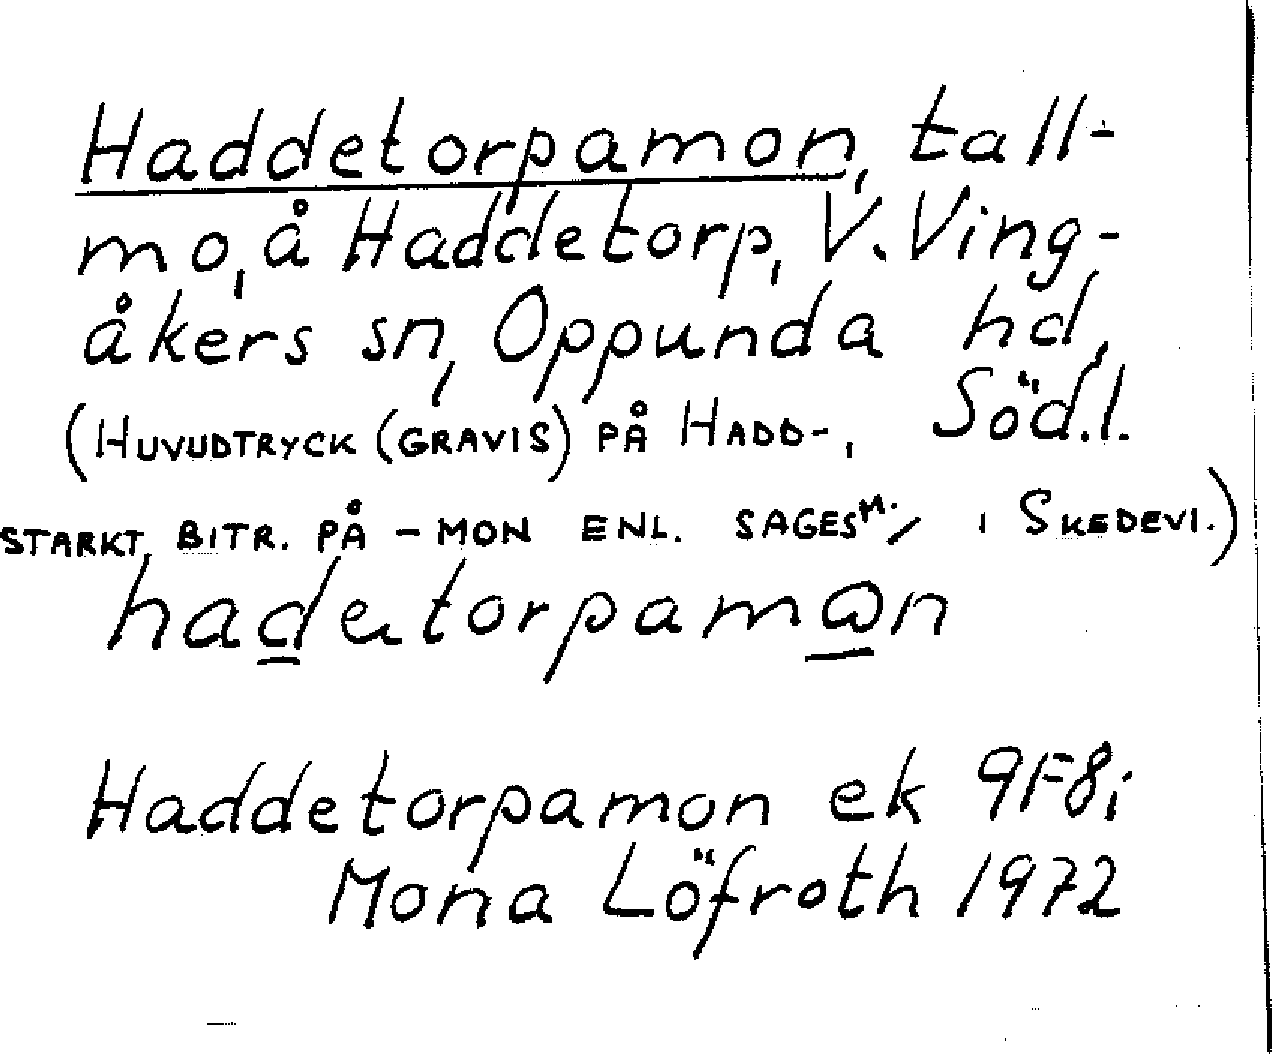 Haddetorpamon, tall-
mo, å Haddetorp, V. Ving-
åkers sn, Oppunda hd,
Söd.l.
(HUVUDTRYCK (GRAVIS) PÅ HADD-,
STARKT BITR. PÅ -MON ENL. SAGESM., I SKEDEVI.)
hadetorpamωn
Haddetorpamon ek 9F8i
Mona Löfroth 1972